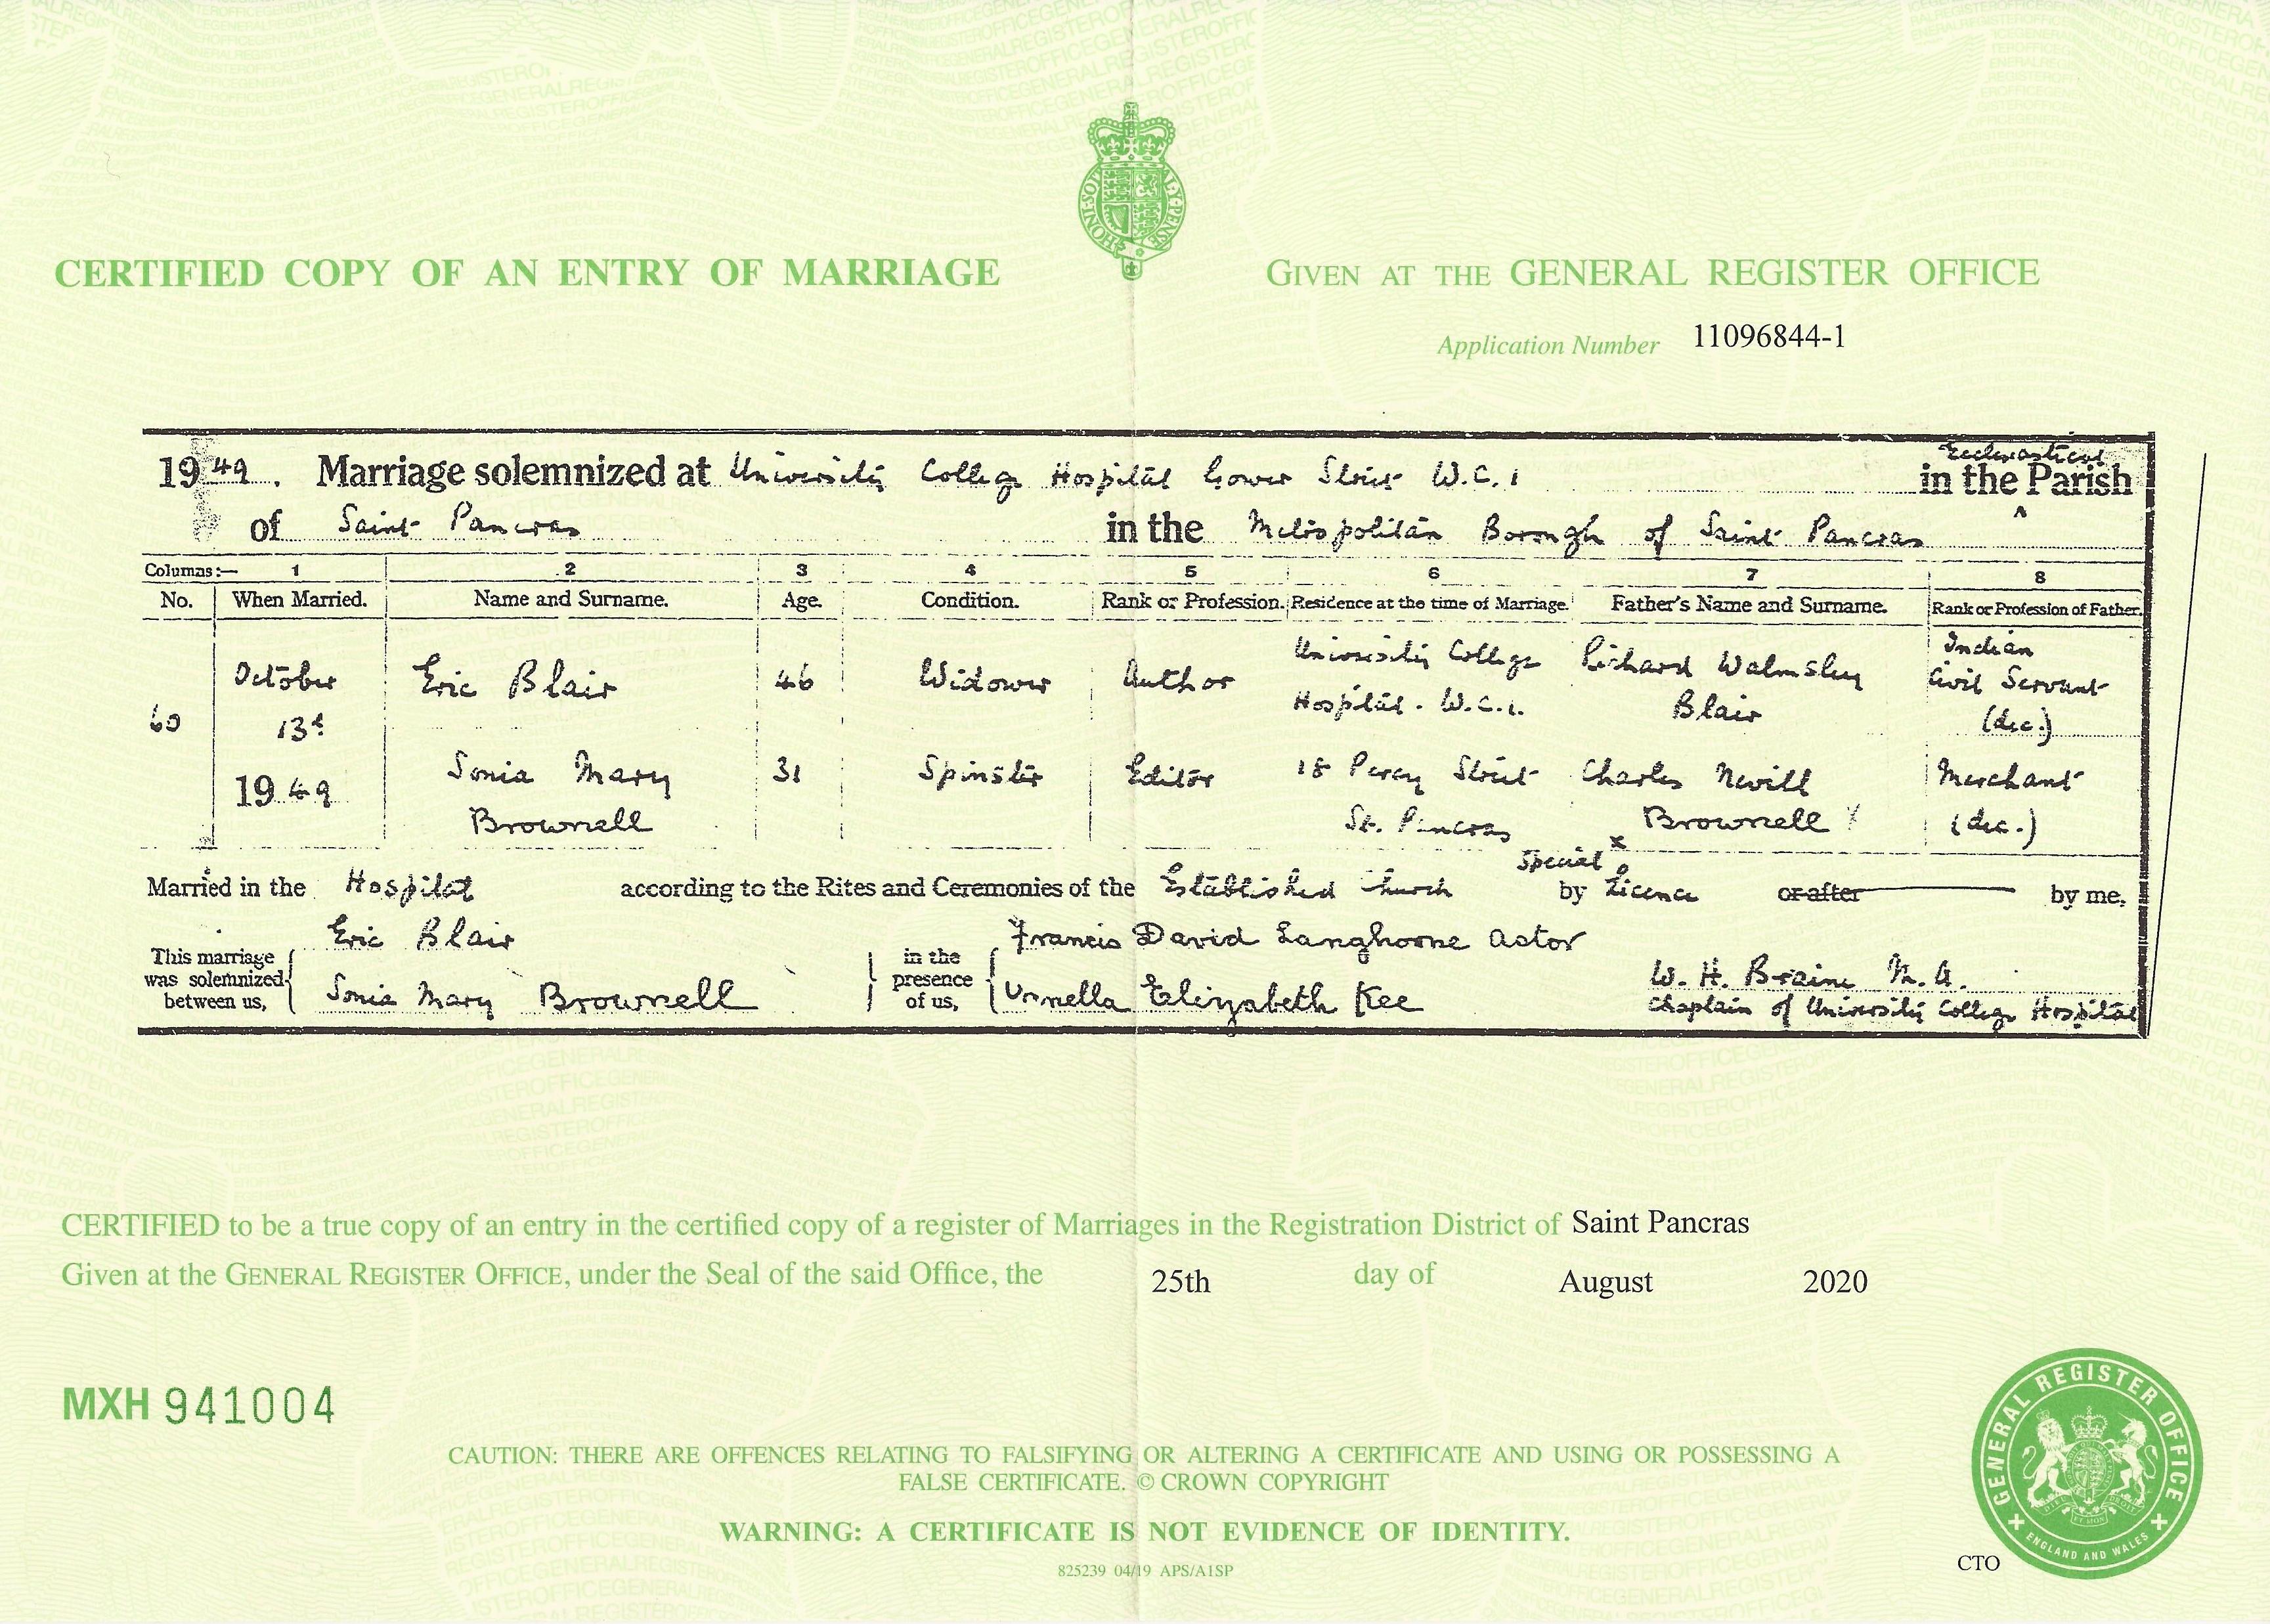 HONI SOIT QUI MAL Y PENSE
CERTIFIED COPY OF AN ENTRY OF MARRIAGE
GIVEN AT THE GENERAL REGISTER OFFICE
Application Number 11096844-1
Ecclesiastical
1949. Marriage solemnized at University College Hospital Gower Street W.C.1 in the Parish
of Saint Pancras in the Metropolitan Borough of Saint Pancras
Columns:— 1 2 3 4 5 6 7 8
No. When Married. Name and Surname. Age. Condition. Rank or Profession. Residence at the time of Marriage. Father's Name and Surname. Rank or Profession of Father.
60 October 13th 1949
Eric Blair 46 Widower Author University College Hospital. W.C.1. Richard Walmsley Blair Indian Civil Servant (dec.)
Sonia Mary Brownell 31 Spinster Editor 18 Percy Street St. Pancras Charles Nevill Brownell Merchant (dec.)
Special x
Married in the Hospital according to the Rites and Ceremonies of the Established Church by Licence or after by me,
This marriage was solemnized between us, Eric Blair
Sonia Mary Brownell
in the presence of us, Francis David Langhorne Astor
Elizabeth Kee
W. H. Braine M.A.
Chaplain of University College Hospital
CERTIFIED to be a true copy of an entry in the certified copy of a register of Marriages in the Registration District of Saint Pancras
Given at the GENERAL REGISTER OFFICE, under the Seal of the said Office, the 25th day of August 2020
MXH 941004
CAUTION: THERE ARE OFFENCES RELATING TO FALSIFYING OR ALTERING A CERTIFICATE AND USING OR POSSESSING A
FALSE CERTIFICATE. © CROWN COPYRIGHT
WARNING: A CERTIFICATE IS NOT EVIDENCE OF IDENTITY.
825239 04/19 APS/A1SP
CTO
GENERAL REGISTER OFFICE
ENGLAND AND WALES